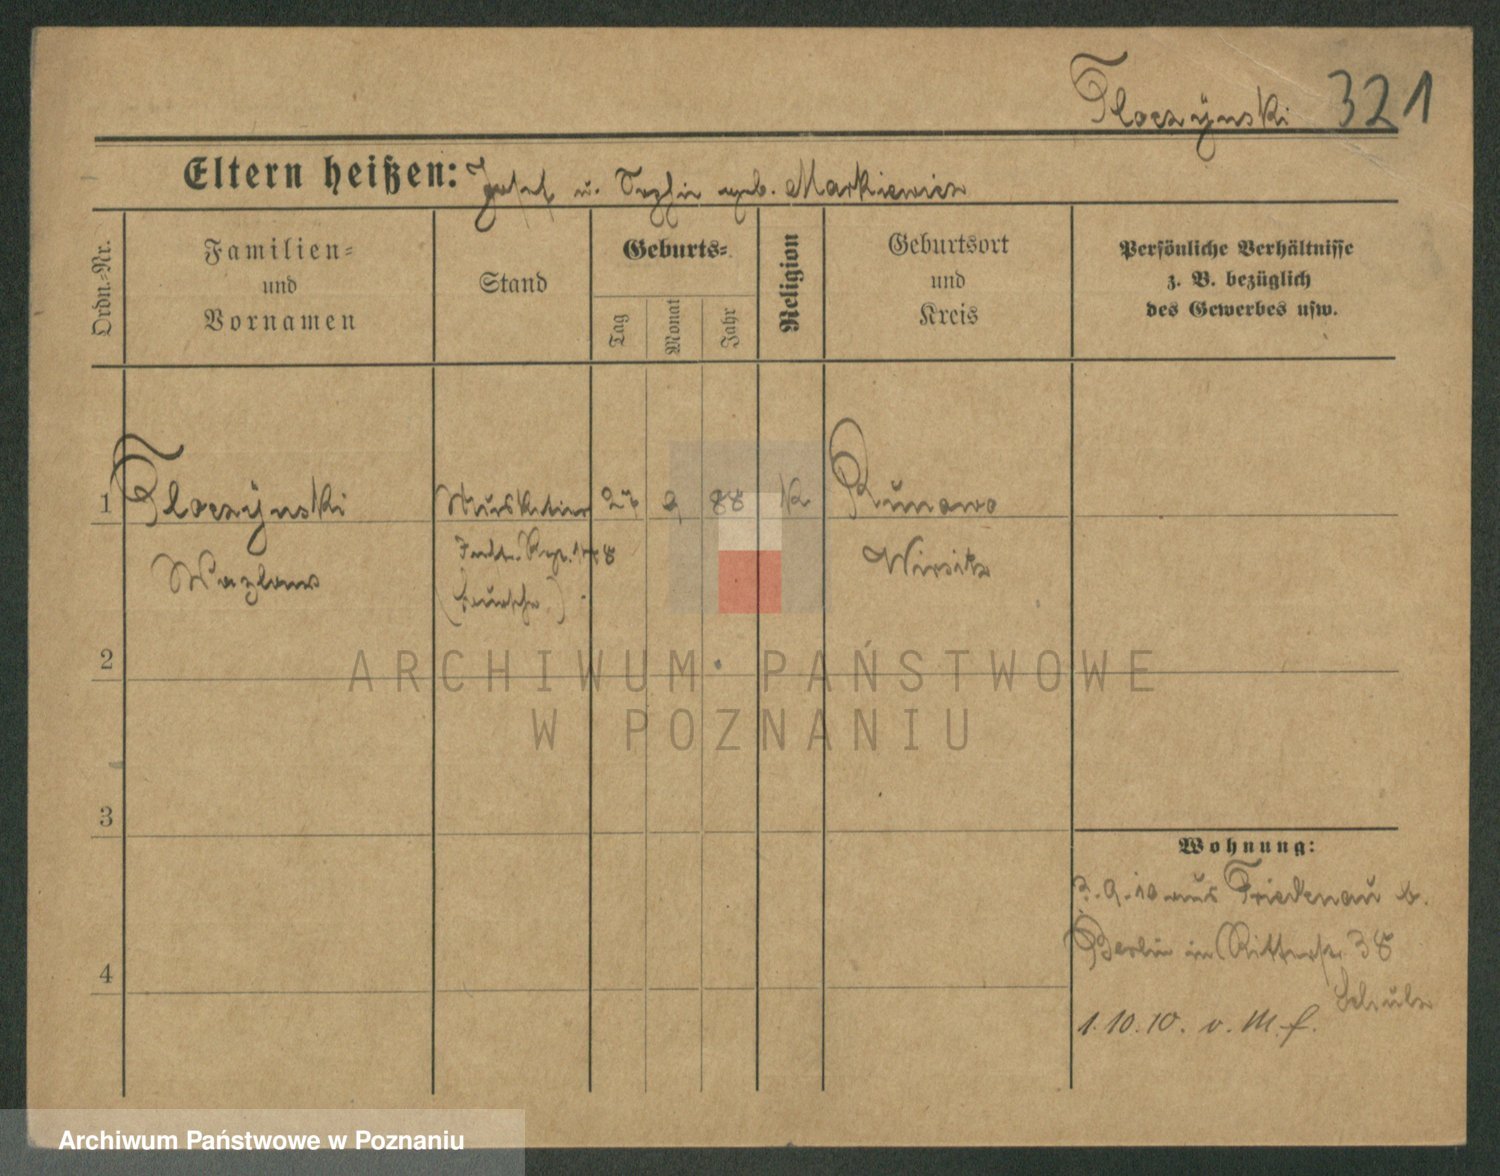 Tloczynski 321
Eltern heißen: Josef u. Sophie geb. Markiewicz
Ordn.-Nr.
Familien-
und
Vornamen
Stand
Geburts-
Tag
Monat
Jahr
Religion
Geburtsort
und
Kreis
Persönliche Verhältnisse
z. B. bezüglich
des Gewerbes usw.
1 Tloczynski Musketier 27 9 88 K Runowo
Inftr. Rgt. 148
Wazlaw Wirsitz
(Bursche)
2
3
4
ARCHIWUM PAŃSTWOWE
W POZNANIU
Wohnung:
3.9.10 aus Friedenau b.
Berlin in Ritterstr 38
1.10.10. v. M. f.
Archiwum Państwowe w Poznaniu